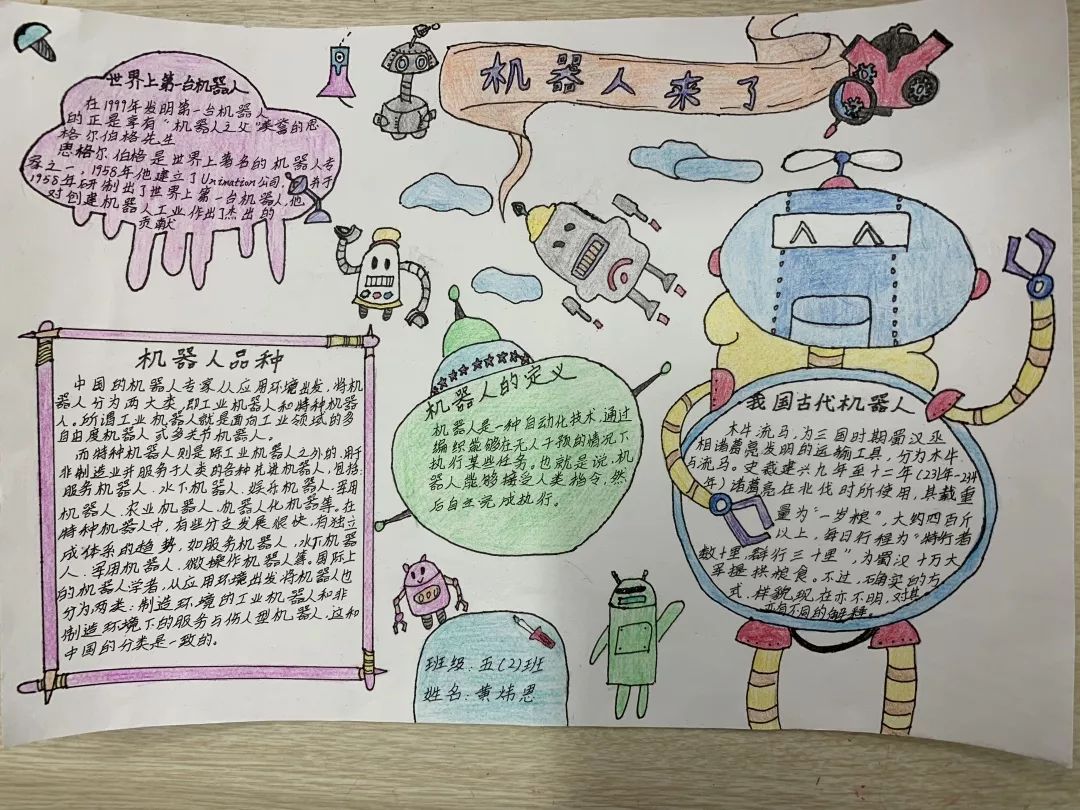 机器人来了
世界上第一台机器人
在1999年发明第一台机器人
的正是享有“机器人之父”美誉的恩
格尔伯格先生
恩格尔伯格是世界上著名的机器人专
家之一，1958年他建立了Unimation公司，并于
1958年研制出了世界上第一台机器人，他
对创建机器人工业作出了杰出的
贡献
机器人品种
中国的机器人专家从应用环境出发，将机
器人分为两大类，即工业机器人和特种机器
人。所谓工业机器人就是面向工业领域的多
自由度机器人或多关节机器人。
而特种机器人则是除工业机器人之外的，用于
非制造业并服务于人类的各种先进机器人，包括
服务机器人、水下机器人、娱乐机器人、军用
机器人、农业机器人、机器人化机器等。在
特种机器人中，有些分支发展很快，有独立
成体系的趋势，如服务机器人、水下机器
人、军用机器人、微操作机器人等。国际上
的机器人学者，从应用环境出发将机器人也
分为两类：制造环境的工业机器人和非
制造环境下的服务与仿人型机器人，这和
中国的分类是一致的。
机器人的定义
机器人是一种自动化技术，通过
编织能够在无人干预的情况下
执行某些任务。也就是说，机
器人能够接受人类指令，然
后自主完成执行。
我国古代机器人
木牛流马，为三国时期蜀汉丞
相诸葛亮发明的运输工具，分为木牛
与流马。史载建兴九年至十二年（231年-234
年）诸葛亮在北伐时所使用，其载重
量为“一岁粮”，大约四百斤
以上，每日行程为“特行者
数十里，群行三十里”，为蜀汉十万大
军提供粮食。不过，确实的方
式、样貌现在亦不明，对其
亦有不同的解释。
班级：五（2）班
姓名：黄炜恩